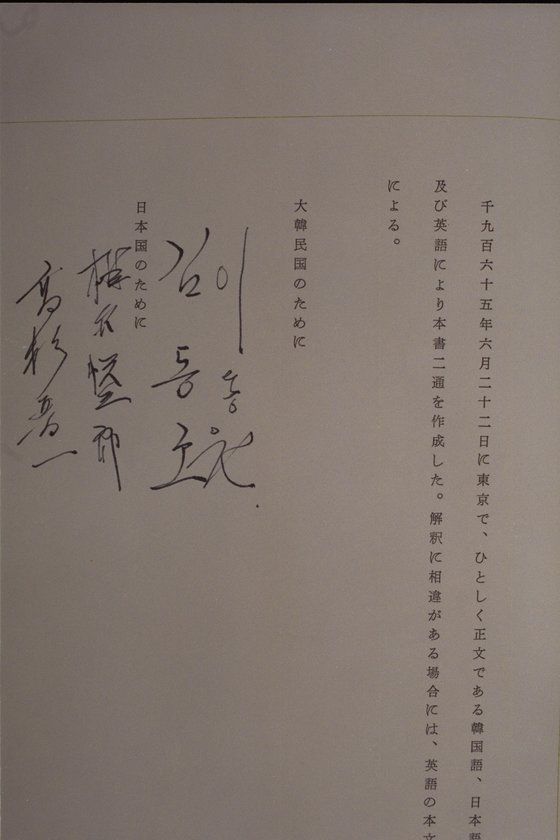 千九百六十五年六月二十二日に東京で、ひとしく正文である韓国語、日本語
及び英語により本書二通を作成した。解釈に相違がある場合には、英語の本文
による。
大韓民国のために
이동원
김동조
日本国のために
椎名悦三郎
高杉晋一